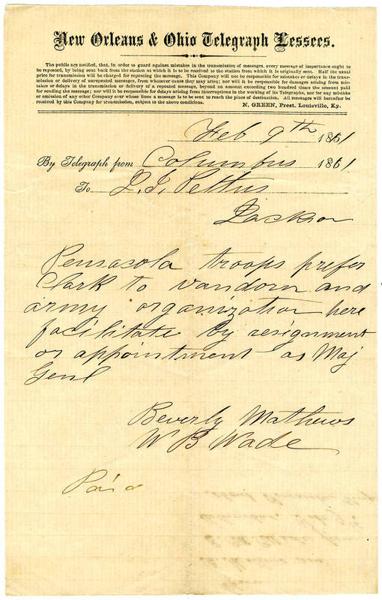 New Orleans & Ohio Telegraph Lessees.
The public are notified, that, in order to guard against mistakes in the transmission of messages, every message of importance ought to
be repeated, by being sent back from the station at which it is to be received to the station from which it is originally sent. Half the usual
price for transmission will be charged for repeating the message. This Company will not be responsible for mistakes or delays in the trans-
mission or delivery of unrepeated messages, from whatever cause they may arise; nor will it be responsible for damages arising from mis-
takes or delays in the transmission or delivery of a repeated message, beyond an amount exceeding two hundred times the amount paid
for sending the message; nor will it be responsible for delays arising from interruptions in the working of its Telegraphs, nor for any mistake
or omission of any other Company over whose lines a message is to be sent to reach the place of destination. All messages will hereafter be
received by this Company for transmission, subject to the above conditions.
N. GREEN, Prest. Louisville, Ky.
Feb 9th 1861
By Telegraph from Columbus 1861
To J. J. Pettus
Jackson
Pensacola troops prefer
Clark to vandorn and
army organization here
facilitate by resignment
or appointment as Maj
Genl
Beverly Mathews
W B Wade
Paid